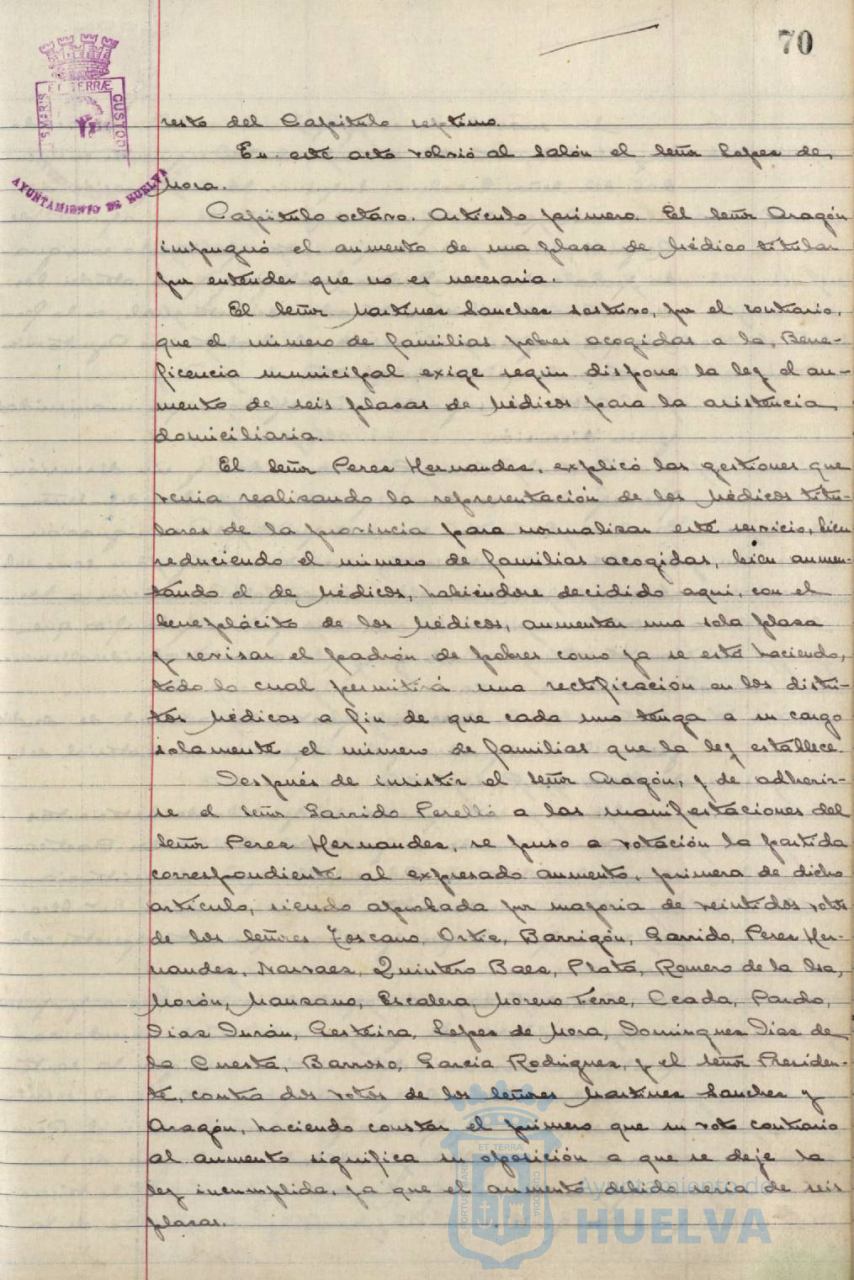 70
ET TERRÆ CUSTOD
AYUNTAMIENTO DE HUELVA
resto del Capitulo septimo.
En este acto volvió al salón el señor Lopez de
Mora.
Capitulo octavo. Artículo primero. El señor Aragón
impugnó el aumento de una plaza de Médico titular
por entender que no es necesaria.
El señor Martinez Sanchez sostuvo, por el contrario,
que el número de familias pobres acogidas a la Bene-
ficencia municipal exige según dispone la ley el au-
mento de seis plazas de Médicos para la asistencia
domiciliaria.
El señor Perez Hernandez, explicó las gestiones que
venia realizando la representación de los Médicos titu-
lares de la provincia para normalizar este servicio, bien
reduciendo el número de familias acogidas, bien aumen-
tando el de Médicos, habiéndose decidido aquí, con el
beneplácito de los Médicos, aumentar una sola plaza
y revisar el padrón de pobres como ya se está haciendo,
todo lo cual permitirá una rectificación en los distri-
tos Médicos a fin de que cada uno tenga a su cargo
solamente el número de familias que la ley establece.
Después de insistir el señor Aragón, y de adherir-
se el señor Garrido Perelló a las manifestaciones del
señor Perez Hernandez, se puso a votación la partida
correspondiente al expresado aumento, primera de dicho
artículo, siendo aprobada por mayoria de veintidos votos
de los señores Toscano, Ortiz, Barrigón, Garrido, Perez Her-
nandez, Narvaez, Quintero Baez, Plata, Romero de la Isa,
Morón, Manzano, Escalera, Moreno Ferre, Ceada, Pardo,
Diaz Durán, Gesteira, Lopez de Mora, Dominguez Diaz de
la Cuesta, Barroso, Garcia Rodriguez, y el señor Presiden-
te, contra dos votos de los señores Martinez Sanchez y
Aragón, haciendo constar el primero que su voto contrario
al aumento significa su oposición a que se deje la
ley incumplida, ya que el aumento debido seria de seis
plazas.
Ayuntamiento de
HUELVA